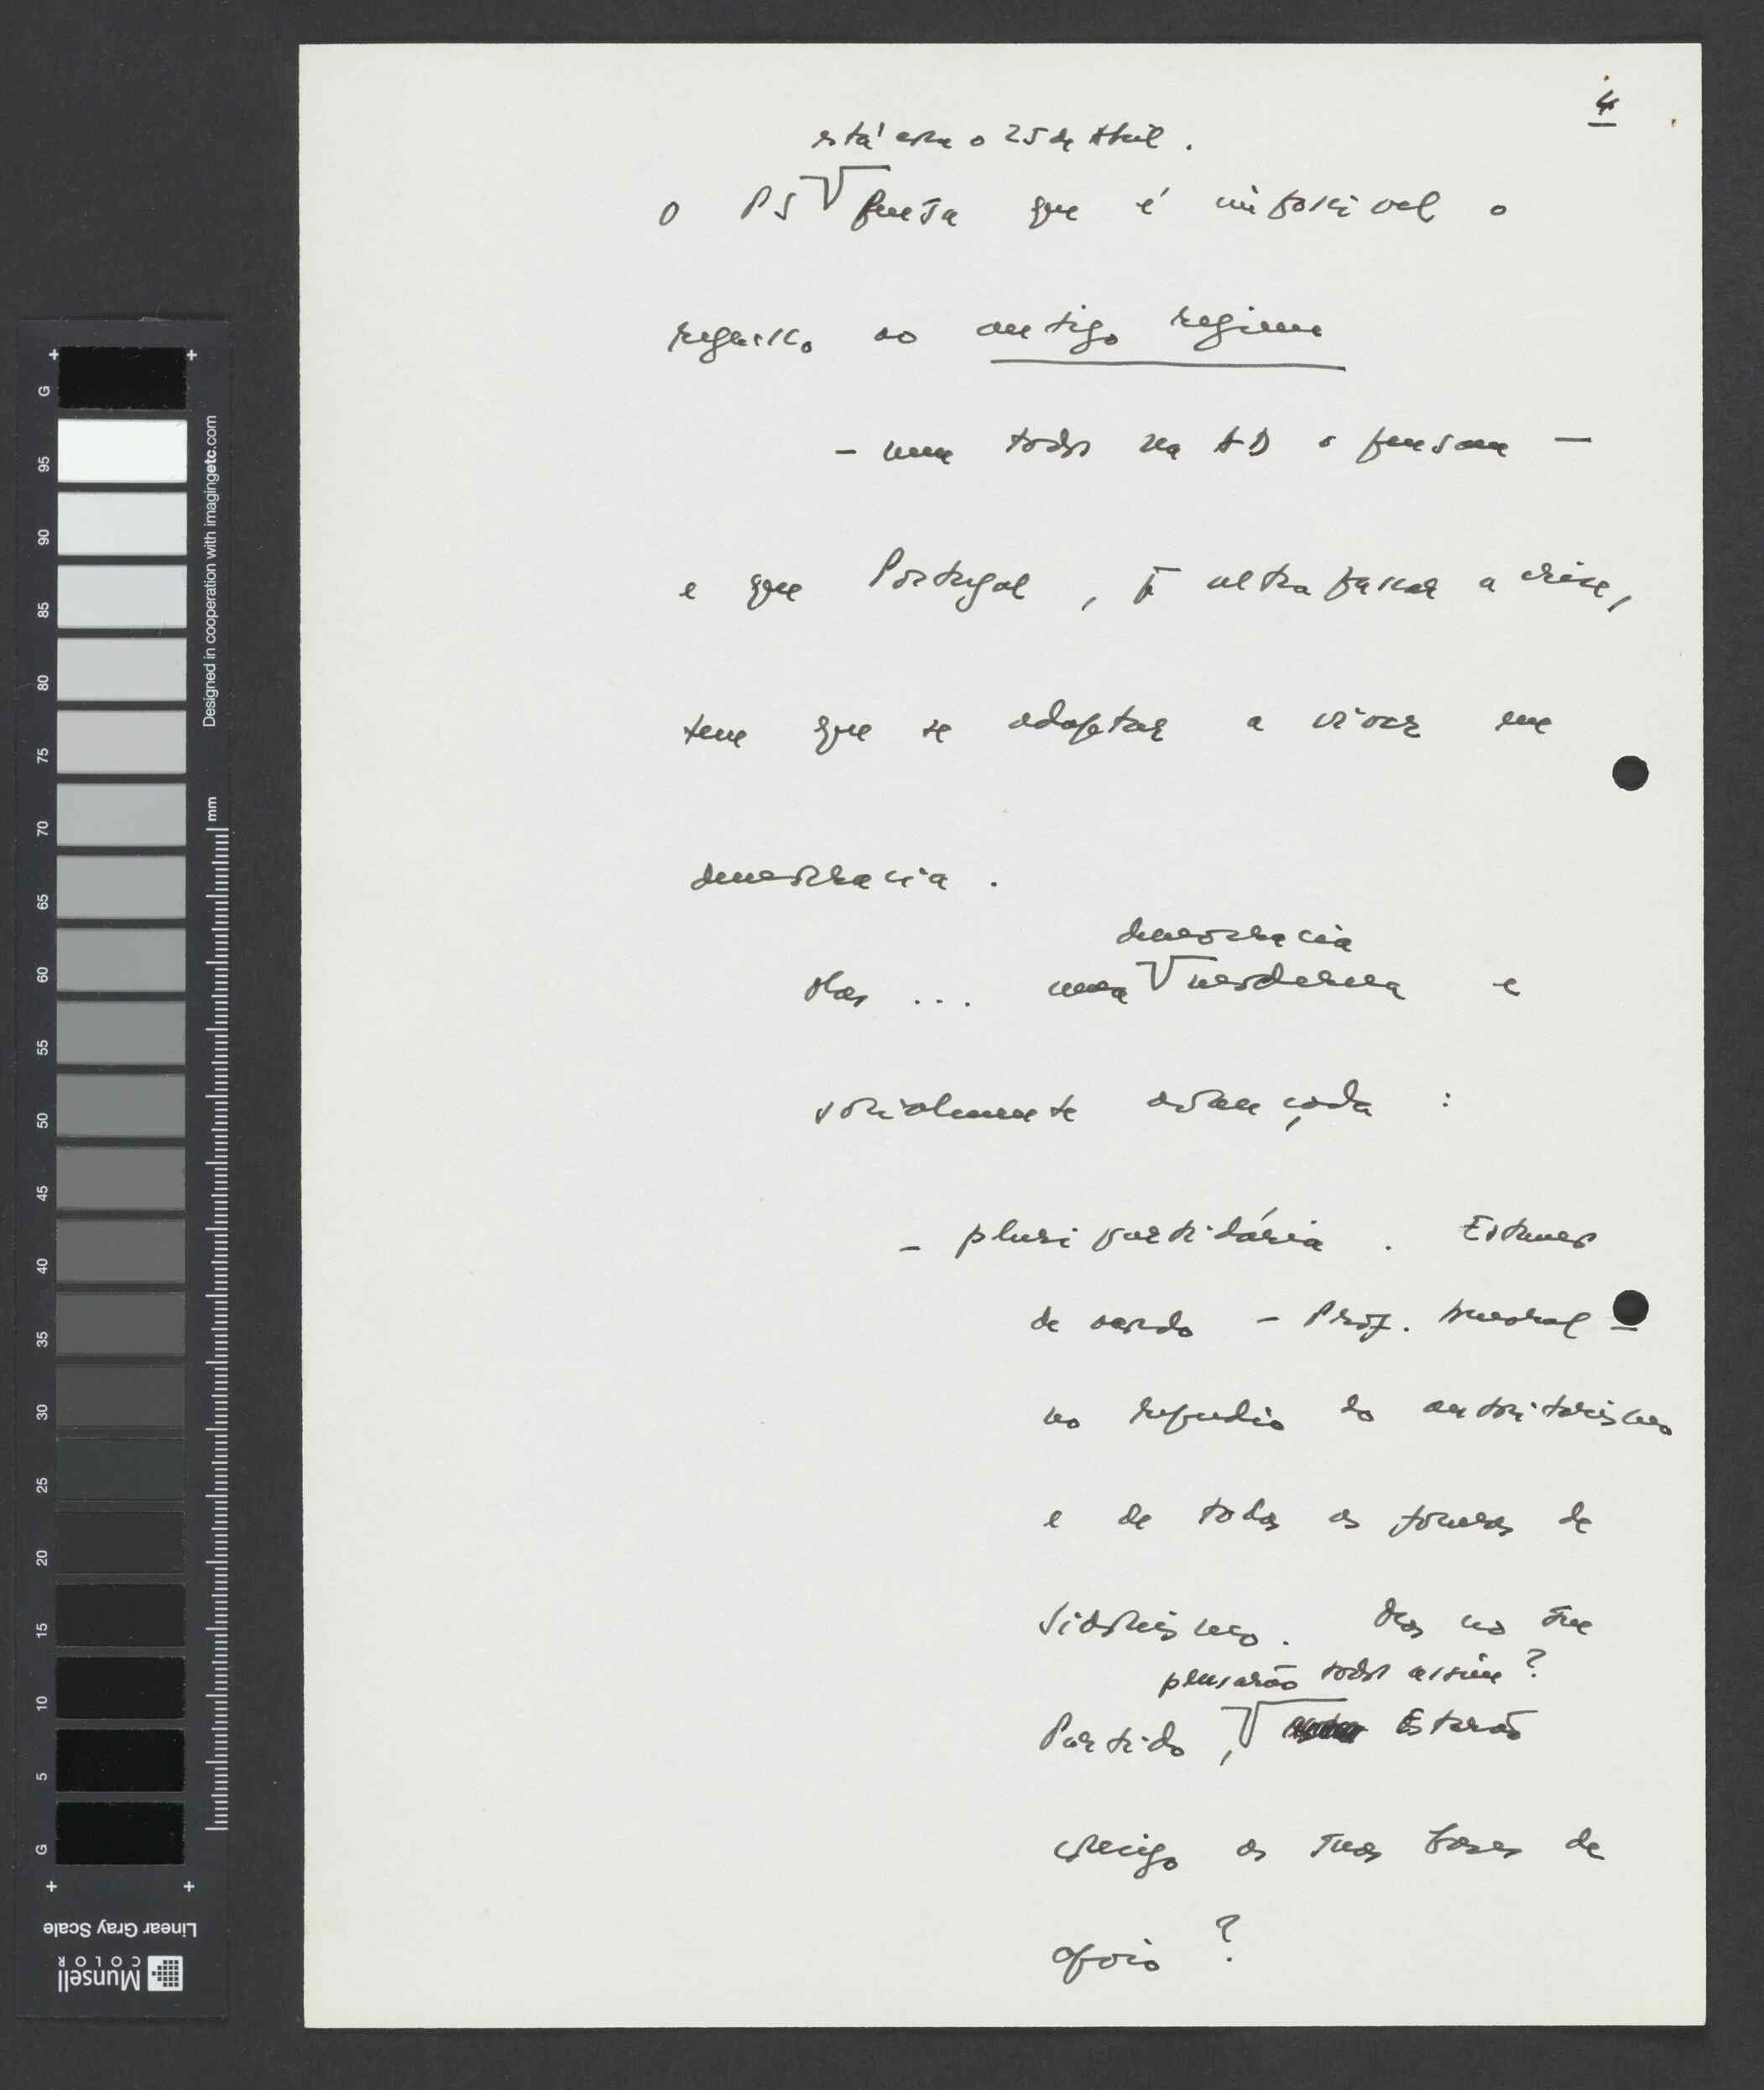 4
está com o 25 de Abril.
O PS pensa que é impossível o
regresso ao antigo regime
- nem todos na AD o pensam -
e que Portugal, p.ª ultrapassar a crise,
tem que se adaptar a viver em
democracia.
democracia
Mas ... uma moderna e
socialmente avançada :
- pluripartidária. Estamos
de acordo - Prof. Amaral -
no repúdio do autoritarismo
e de todas as formas de
Sidonismo. Mas no seu
pensarão todos assim?
Partido, Estarão
consigo as suas bases de
apoio ?
G
95
90
85
80
75
70
65
60
55
50
45
40
35
30
25
20
15
10
5
G
Designed in cooperation with imagingetc.com
mm
Linear Gray Scale
Munsell
COLOR